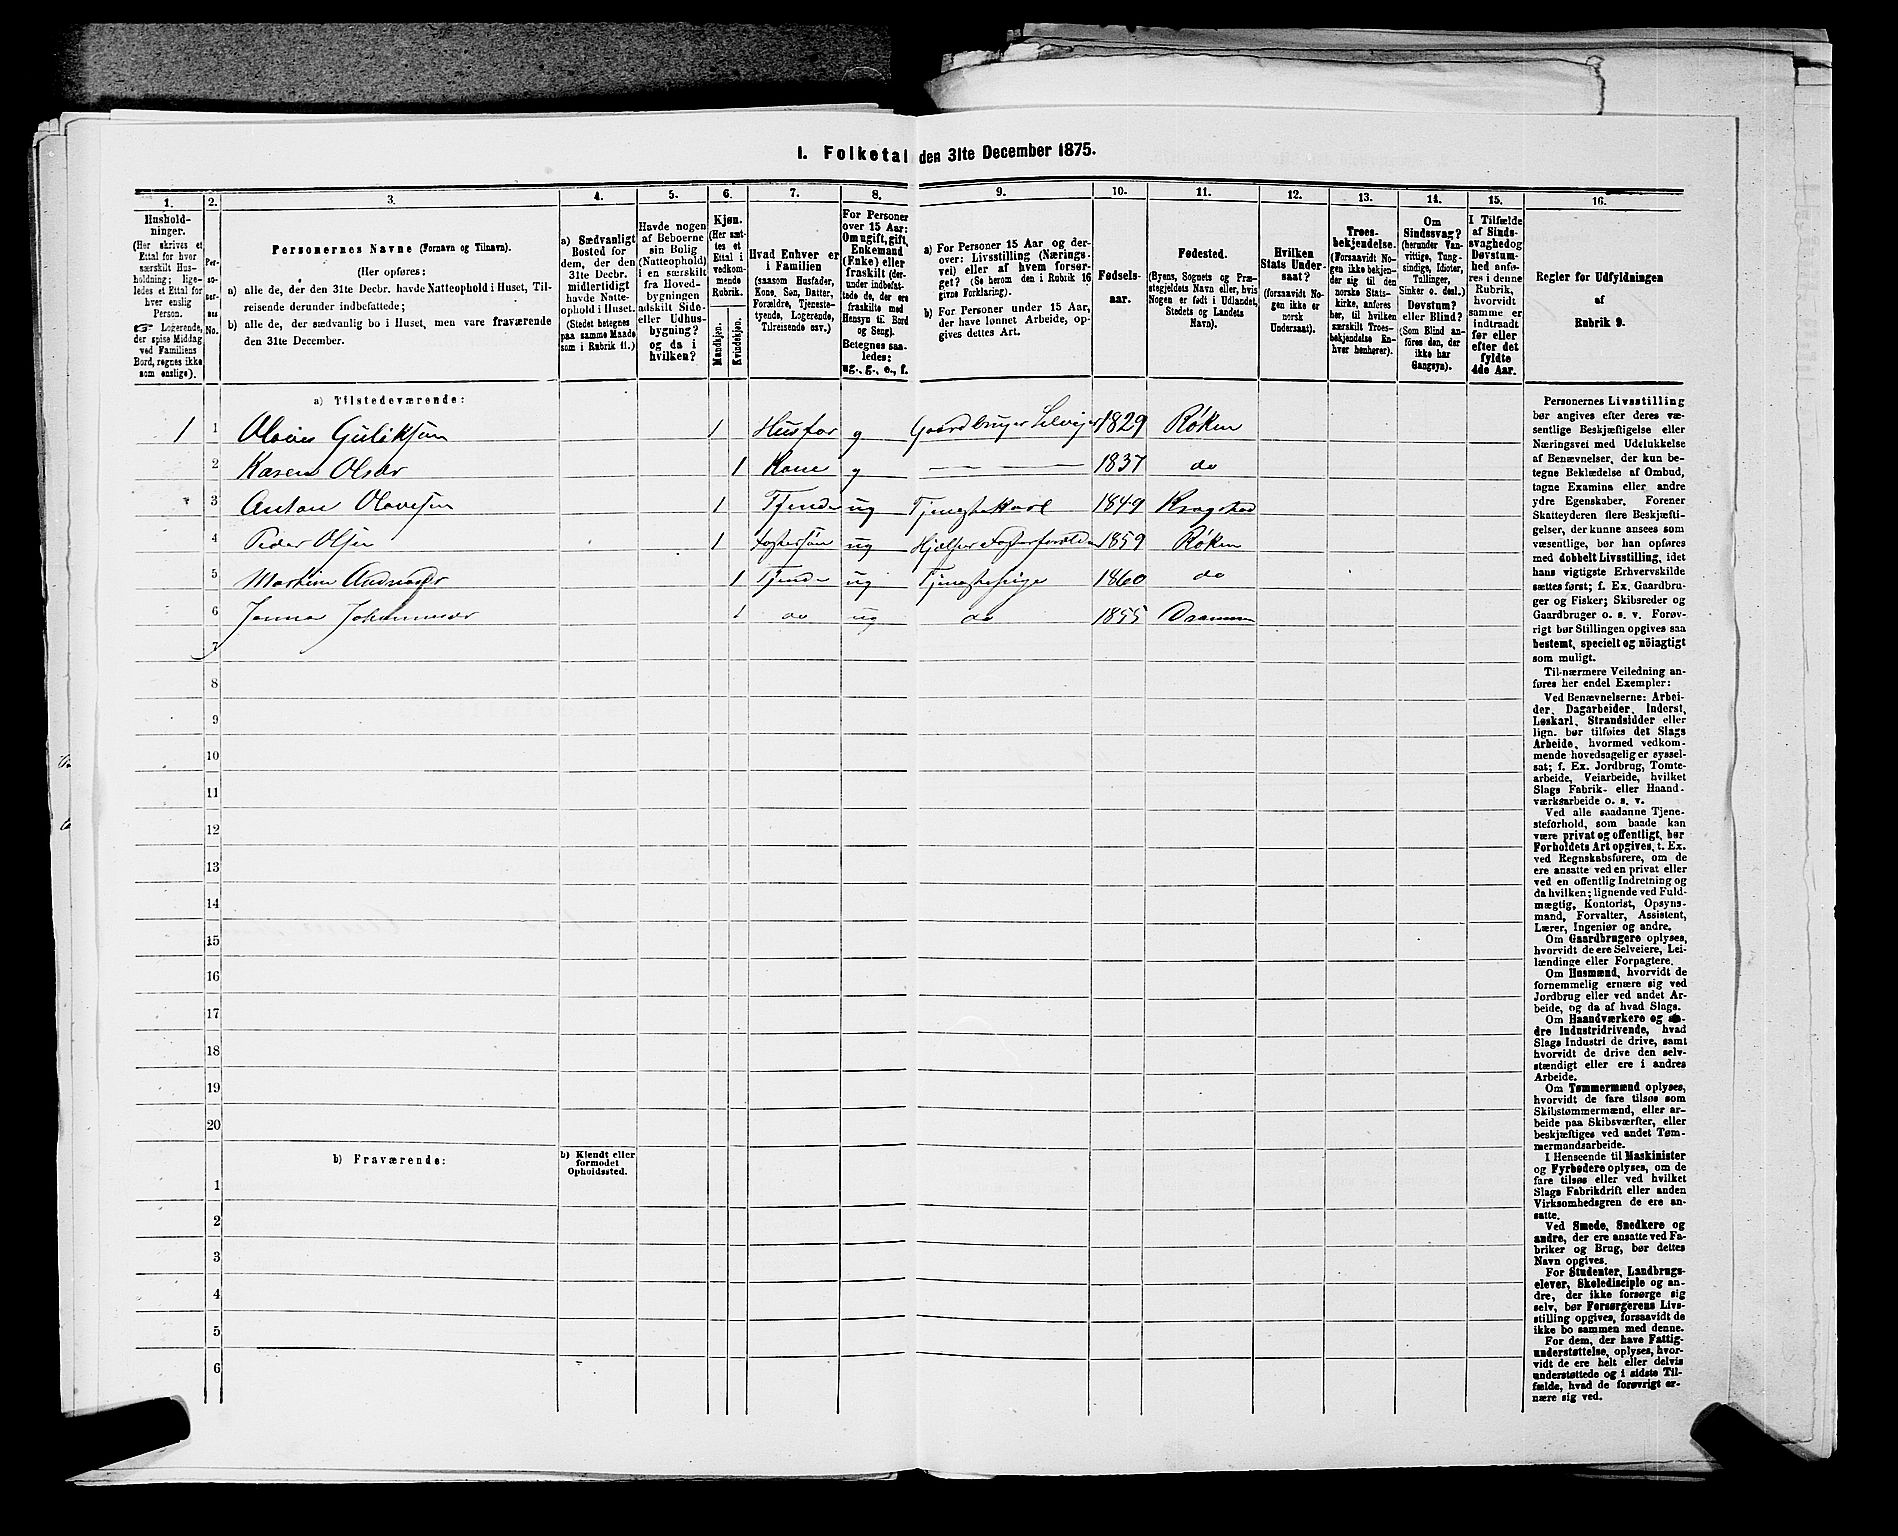 1. Folketal den 31te December 1875.
1. 2. 3. 4. 5. 6. 7. 8. 9. 10. 11. 12. 13. 14. 15. 16.
Hushold-
ninger.
(Her skrives et
Ettal for hver
særskilt Hus-
holdning; lige-
ledes et Ettal for
hver enslig
Person.
☞ Logerende,
der spise Middag
ved Familiens
Bord, regnes ikke
som enslige).
Per-
so-
ner-
nes
No.
Personernes Navne (Fornavn og Tilnavn).
(Her opføres:
a) alle de, der den 31te Decbr. havde Natteophold i Huset, Til-
reisende derunder indbefattede;
b) alle de, der sædvanlig bo i Huset, men vare fraværende
den 31te December.
a) Sædvanligt
Bosted for
dem, der den
31te Decbr.
midlertidigt
havde Natte-
ophold i Huset.
(Stedet betegnes
paa samme Maade
som i Rubrik 11.)
Havde nogen
af Beboerne
sin Bolig
(Natteophold)
i en særskilt
fra Hoved-
bygningen
adskilt Side-
eller Udhus-
bygning?
og da i
hvilken?
Kjøn.
(Her sæt-
tes et
Ettal i
vedkom-
mende
Rubrik.
Mandkjøn.
Kvindekjøn.
Hvad Enhver er
i Familien
(saasom Husfader,
Kone, Søn, Datter,
Forældre, Tjeneste-
tyende, Logerende,
Tilreisende osv.)
For Personer
over 15 Aar:
Om ugift, gift,
Enkemand
(Enke) eller
fraskilt (der-
under indbefat-
tede de, der ere
fraskilte med
Hensyn til Bord
og Seng).
Betegnes saa-
ledes:
ug., g., e., f.
a) For Personer 15 Aar og der-
over: Livsstilling (Nærings-
vei) eller af hvem forsør-
get? (Se herom den i Rubrik 16
givne Forklaring).
b) For Personer under 15 Aar,
der have lønnet Arbeide, op-
gives dettes Art.
Fødsels-
aar.
Fødested.
(Byens, Sognets og Præ-
stegjeldets Navn eller, hvis
Nogen er født i Udlandet,
Stedets og Landets
Navn).
Hvilken
Stats Under-
saat?
(forsaavidt No-
gen ikke er
norsk
Undersaat).
Troes-
bekjendelse.
(Forsaavidt No-
gen ikke bekjen-
der sig til den
norske Stats-
kirke, anføres
her, til hvilken
særskilt Troes-
bekjendelse En-
hver henhører).
Om
Sindssvag?
(herunder Van-
vittige, Tung-
sindige, Idioter,
Tullinger,
Sinker o. desl.)
Døvstum?
eller Blind?
(Som Blind an-
føres den, der
ikke har
Gangsyn).
I Tilfælde
af Sinds-
svaghed og
Døvstum-
hed anfø-
res i denne
Rubrik,
hvorvidt
samme er
indtraadt
før eller
efter det
fyldte
4de Aar.
Regler for Udfyldningen
af
Rubrik 9.
a) Tilstedeværende:
1 1 Olaves Guliksen 1 Husfar g Gaardbruger Selveier 1829 Røken
2 Karen Olsdr 1 Kone g — — — 1837 do
3 Anton Olavesen 1 Tjende ug Tjenestekarl 1849 Kragstad
4 Peder Olsen 1 Fostersøn ug Hjælper Fosterforældre 1859 Røken
5 1 Tjende ug Tjenestepige 1860 do
6 1 do ug do 1855 Drammen
7
8
9
10
11
12
13
14
15
16
17
18
19
20
b) Fraværende:
b) Kjendt eller
formodet
Opholdssted.
1
2
3
4
5
6
Personernes Livsstilling
bør angives efter deres væ-
sentlige Beskjæftigelse eller
Næringsvei med Udelukkelse
af Benævnelser, der kun be-
tegne Beklædelse af Ombud,
tagne Examina eller andre
ydre Egenskaber. Forener
Skatteyderen flere Beskjæfti-
gelser, der kunne ansees som
væsentlige, bør han opføres
med dobbelt Livsstilling, idet
hans vigtigste Erhvervskilde
sættes først; f. Ex. Gaardbru-
ger og Fisker; Skibsreder og
Gaardbruger o. s. v. Forøv-
rigt bør Stillingen opgives saa
bestemt, specielt og nöiagtigt
som muligt.
Til nærmere Veiledning an-
føres her endel Exempler:
Ved Benævnelserne: Arbei-
der, Dagarbeider, Inderst,
Løskarl, Strandsidder eller
lign. bør tilføies det Slags
Arbeide, hvormed vedkom-
mende hovedsagelig er syssel-
sat; f. Ex. Jordbrug, Tomte-
arbeide, Veiarbeide, hvilket
Slags Fabrik- eller Haand-
værksarbeide o. s. v.
Ved alle saadanne Tjene-
steforhold, som baade kan
være privat og offentligt, bør
Forholdets Art opgives, t. Ex.
ved Regnskabsførere, om de
ere ansatte ved en privat eller
ved en offentlig Indretning og
da hvilken; lignende ved Fuld-
mægtig, Kontorist, Opsyns-
mand, Forvalter, Assistent,
Lærer, Ingeniør og andre.
Om Gaardbrugere oplyses,
hvorvidt de ere Selveiere, Lei-
lændinge eller Forpagtere.
Om Husmænd, hvorvidt de
fornemmelig ernære sig ved
Jordbrug eller ved andet Ar-
beide, og da af hvad Slags.
Om Haandværkere og an-
dre Industridrivende, hvad
Slags Industri de drive, samt
hvorvidt de drive den selv-
stændigt eller ere i andres
Arbeide.
Om Tømmermænd oplyses,
hvorvidt de fare tilsøs som
Skibstømmermænd, eller ar-
beide paa Skibsværfter, eller
beskjæftiges ved andet Tøm-
mermandsarbeide.
I Henseende til Maskinister
og Fyrbødere oplyses, om de
fare tilsøs eller ved hvilket
Slags Fabrikdrift eller anden
Virksomhedsgren de ere an-
satte.
Ved Smede, Snedkere og
andre, der ere ansatte ved Fa-
briker og Brug, bør dettes
Navn opgives.
For Studenter, Landbrugs-
elever, Skoledisciple og an-
dre, der ikke forsørge sig
selv, bør Forsørgerens Livs-
stilling opgives, forsaavidt de
ikke bo sammen med denne.
For dem, der have Fattig-
understøttelse, oplyses, hvor-
vidt de ere helt eller delvis
understøttede og i sidste Til-
fælde, hvad de forøvrigt er-
nære sig ved.